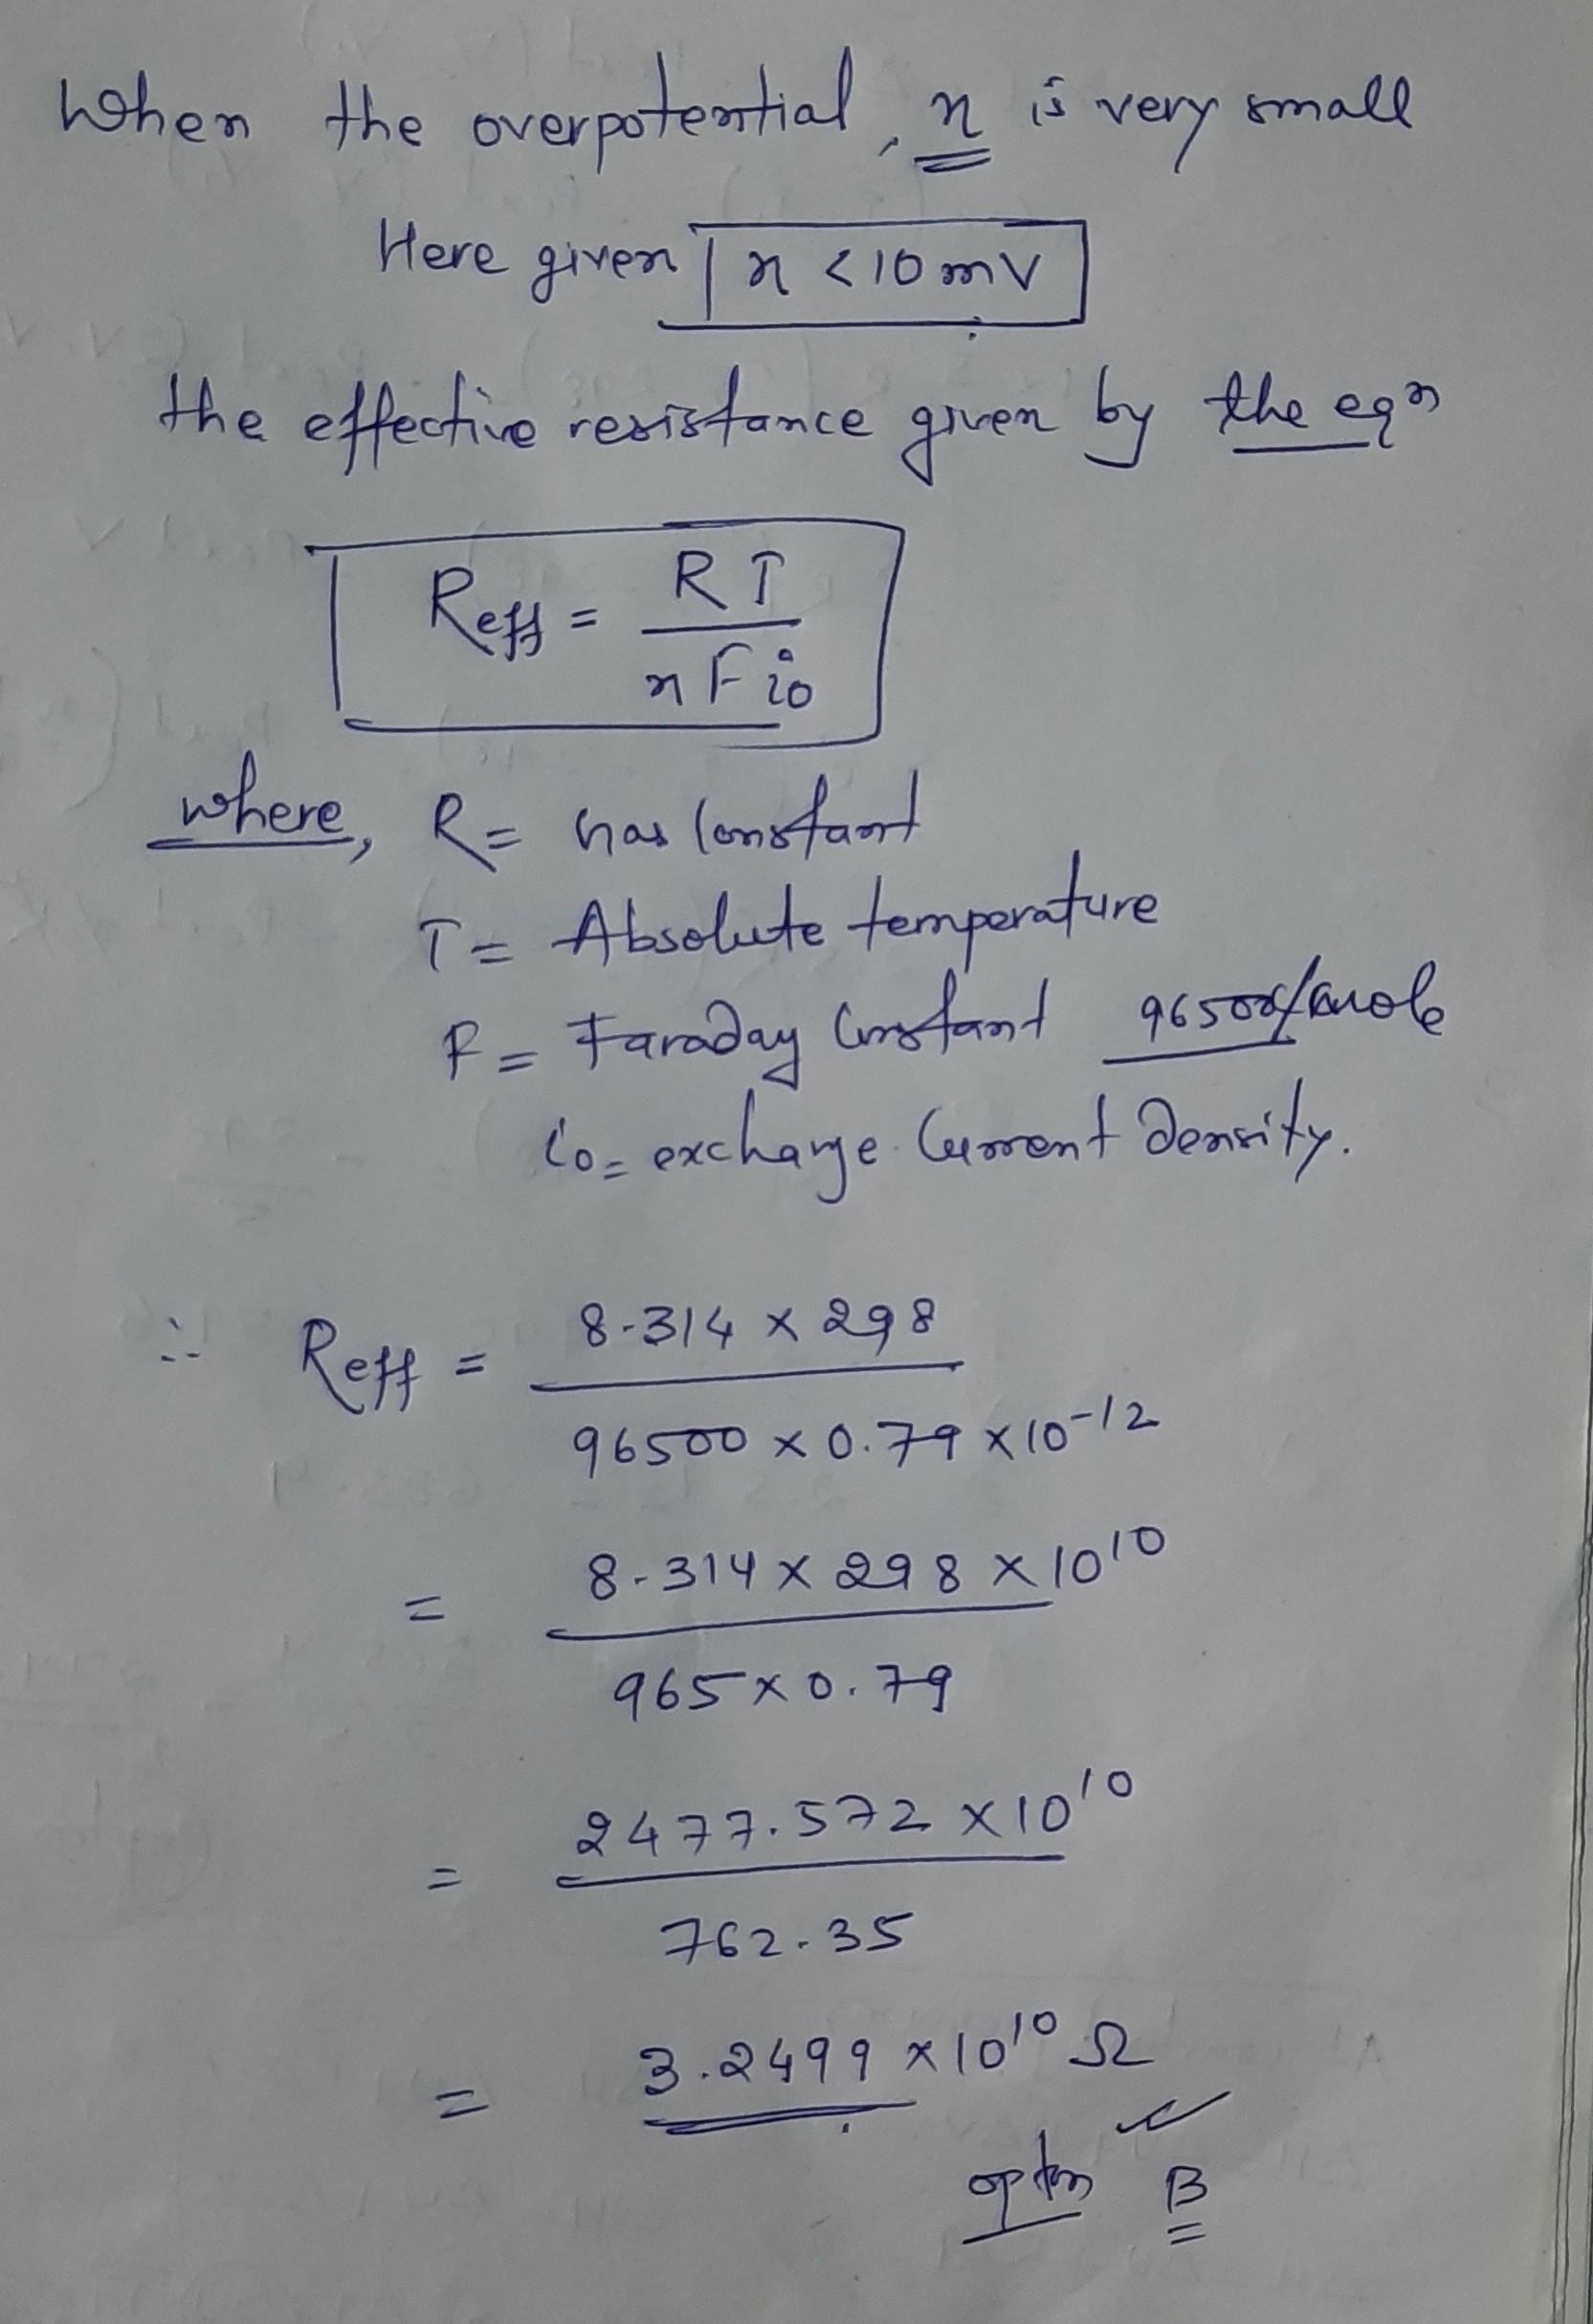 When the overpotential, n is very small
Here given n < 10 mV
the effective resistance given by the eqn
Reff = RT / nFio
where, R = Gas Constant
T = Absolute temperature
F = Faraday Constant 96500c/mole
io = exchange Current Density.
∴ Reff = 8.314 × 298 / 96500 × 0.79 × 10^-12
= 8.314 × 298 × 10^10 / 965 × 0.79
= 2477.572 × 10^10 / 762.35
= 3.2499 × 10^10 Ω
option B